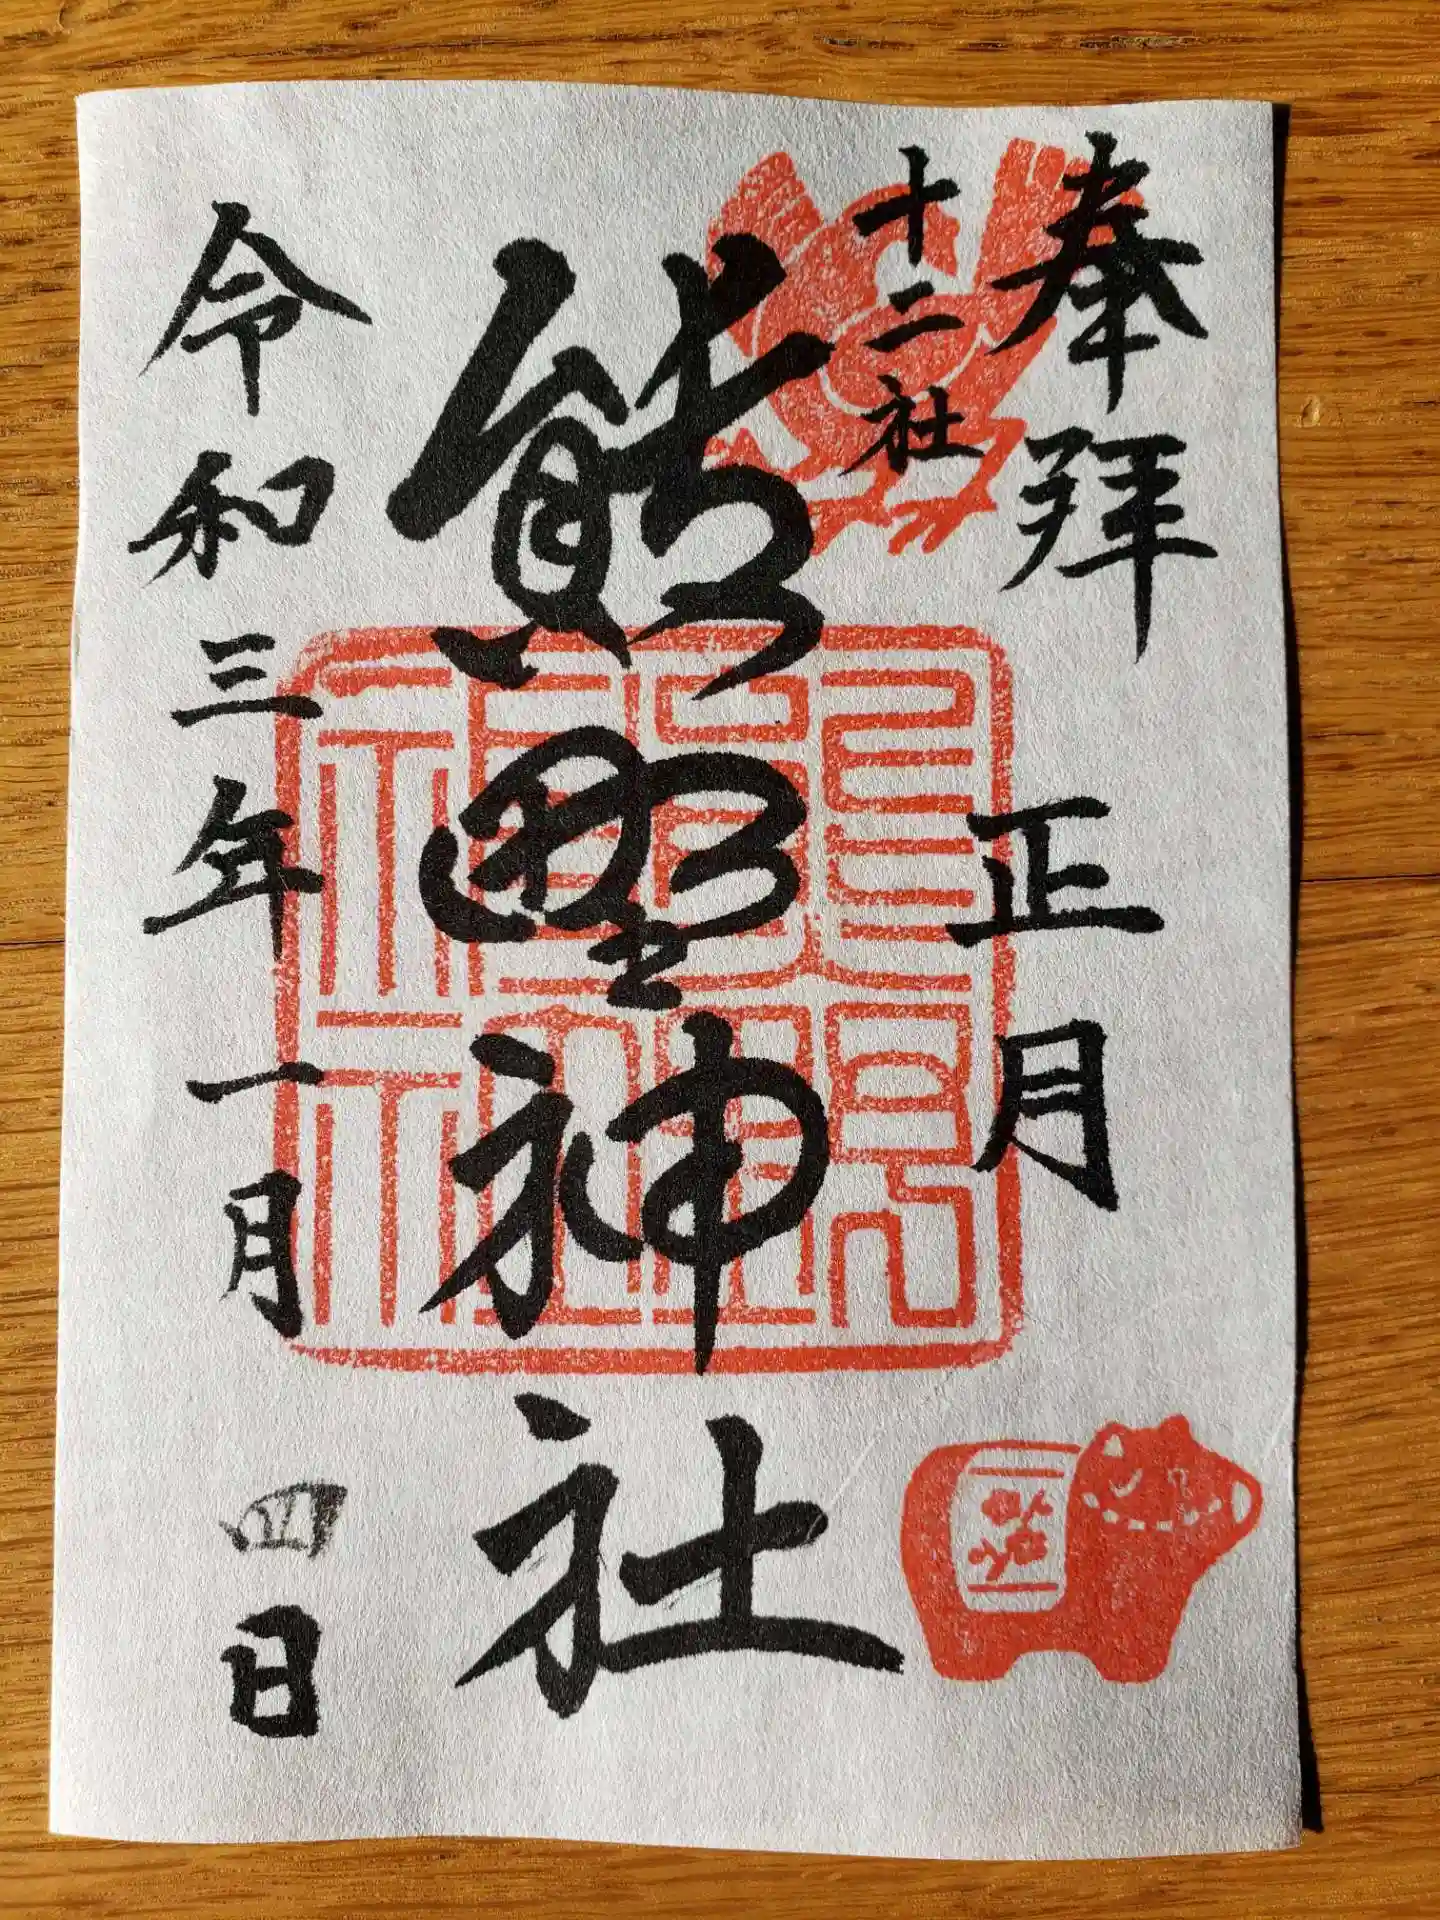 奉拝
正月
十二社
熊野神社
令和三年一月四日